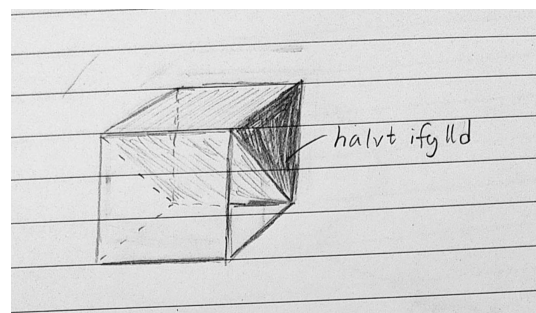 halvt ifylld